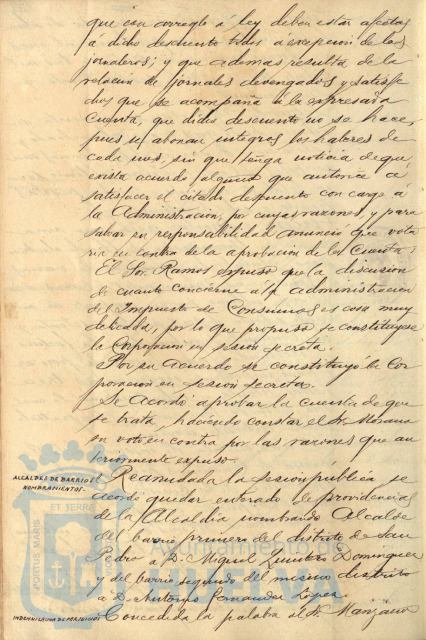 que con arreglo á ley deben estar afectos
á dicho descuento todos á excepción de los
jornaleros; y que además resulta de la
relación de jornales devengados y satisfe
chos que se acompaña á la expresada
cuenta, que dicho descuento no se hace,
pues se abonan íntegros los haberes de
cada uno, sin que tenga noticia de que
exista acuerdo alguno que autorice á
satisfacer el citado descuento con cargo á
la Administración, por cuyas razones, y para
salvar su responsabilidad anunció que vota
ría en contra de la aprobación de la Cuenta.
El Sor. Ramos expuso que la discusión
de cuanto concierne á la administración
del Impuesto de Consumos es cosa muy
delicada, por lo que propuso se constituyese
la Corporación en sesión secreta.
Por su acuerdo se constituyó la Cor
poración en sesión secreta.
Se Acordó aprobar la cuenta de que
se trata, haciendo constar el Sr.
su voto en contra por las razones que an
teriormente expuso.
ALCALDES DE BARRIO
NOMBRAMIENTOS.
Reanudada la sesión pública se
acordó quedar enterado de providencias
de la Alcaldía nombrando Alcalde
del barrio primero del distrito de San
Pedro á D. Miguel Quintero Dominguez
y del barrio segundo del mismo distrito
á D. Antonio Fernandez López.
Concedida la palabra al Sr. Manzano
PORTUS MARIS
ET TERRÆ
Ayuntamiento de